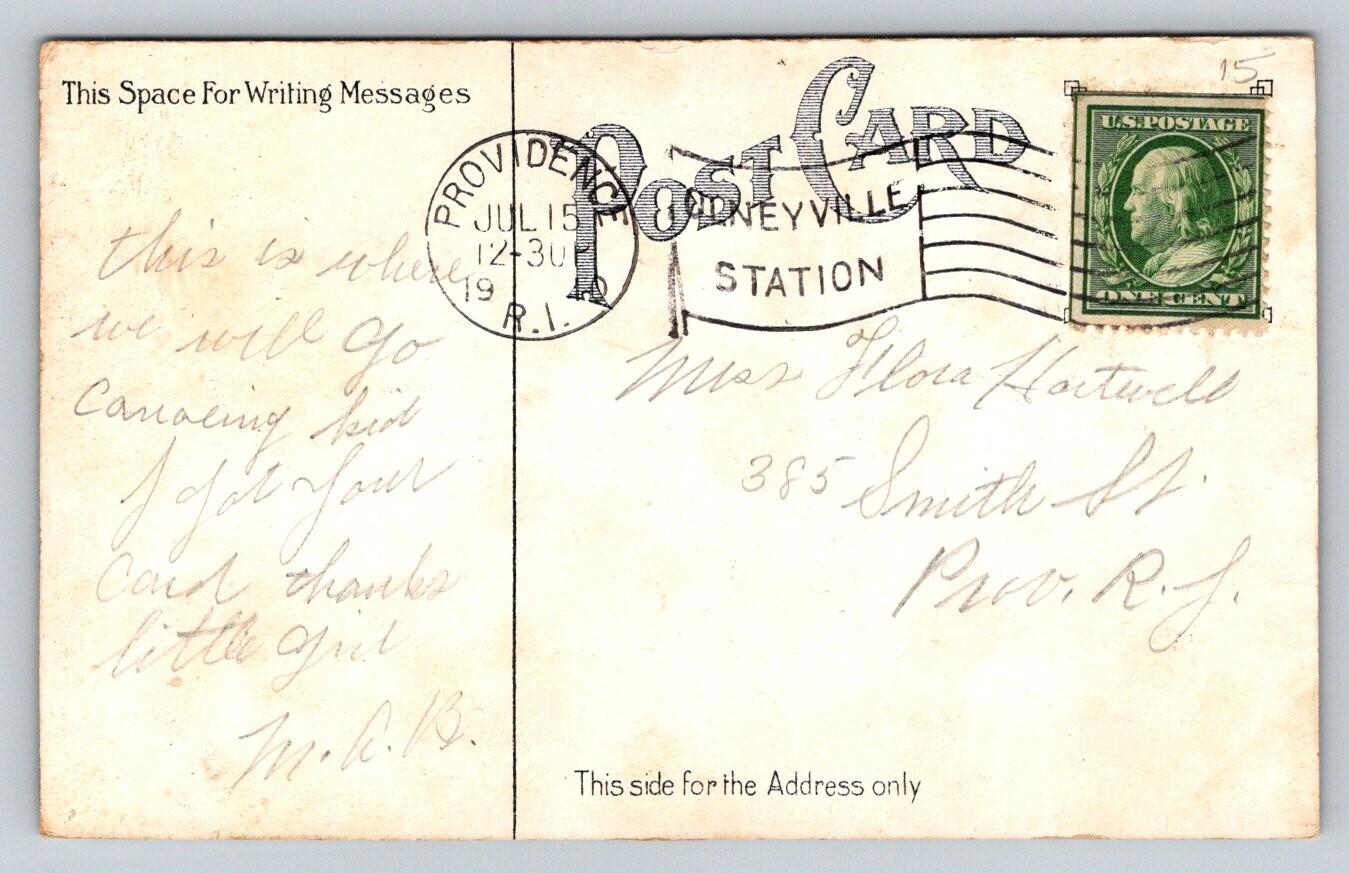 This Space For Writing Messages
POST CARD
15
U.S. POSTAGE
ONE CENT
PROVIDENCE
JUL 15
12-30
19
R.I.
STATION
this is where
we will go
Canoeing kid
I got your
card thanks
little girl
M. A. B.
Miss Flora Hartwell
385 Smith St.
Prov. R. I.
This side for the Address only